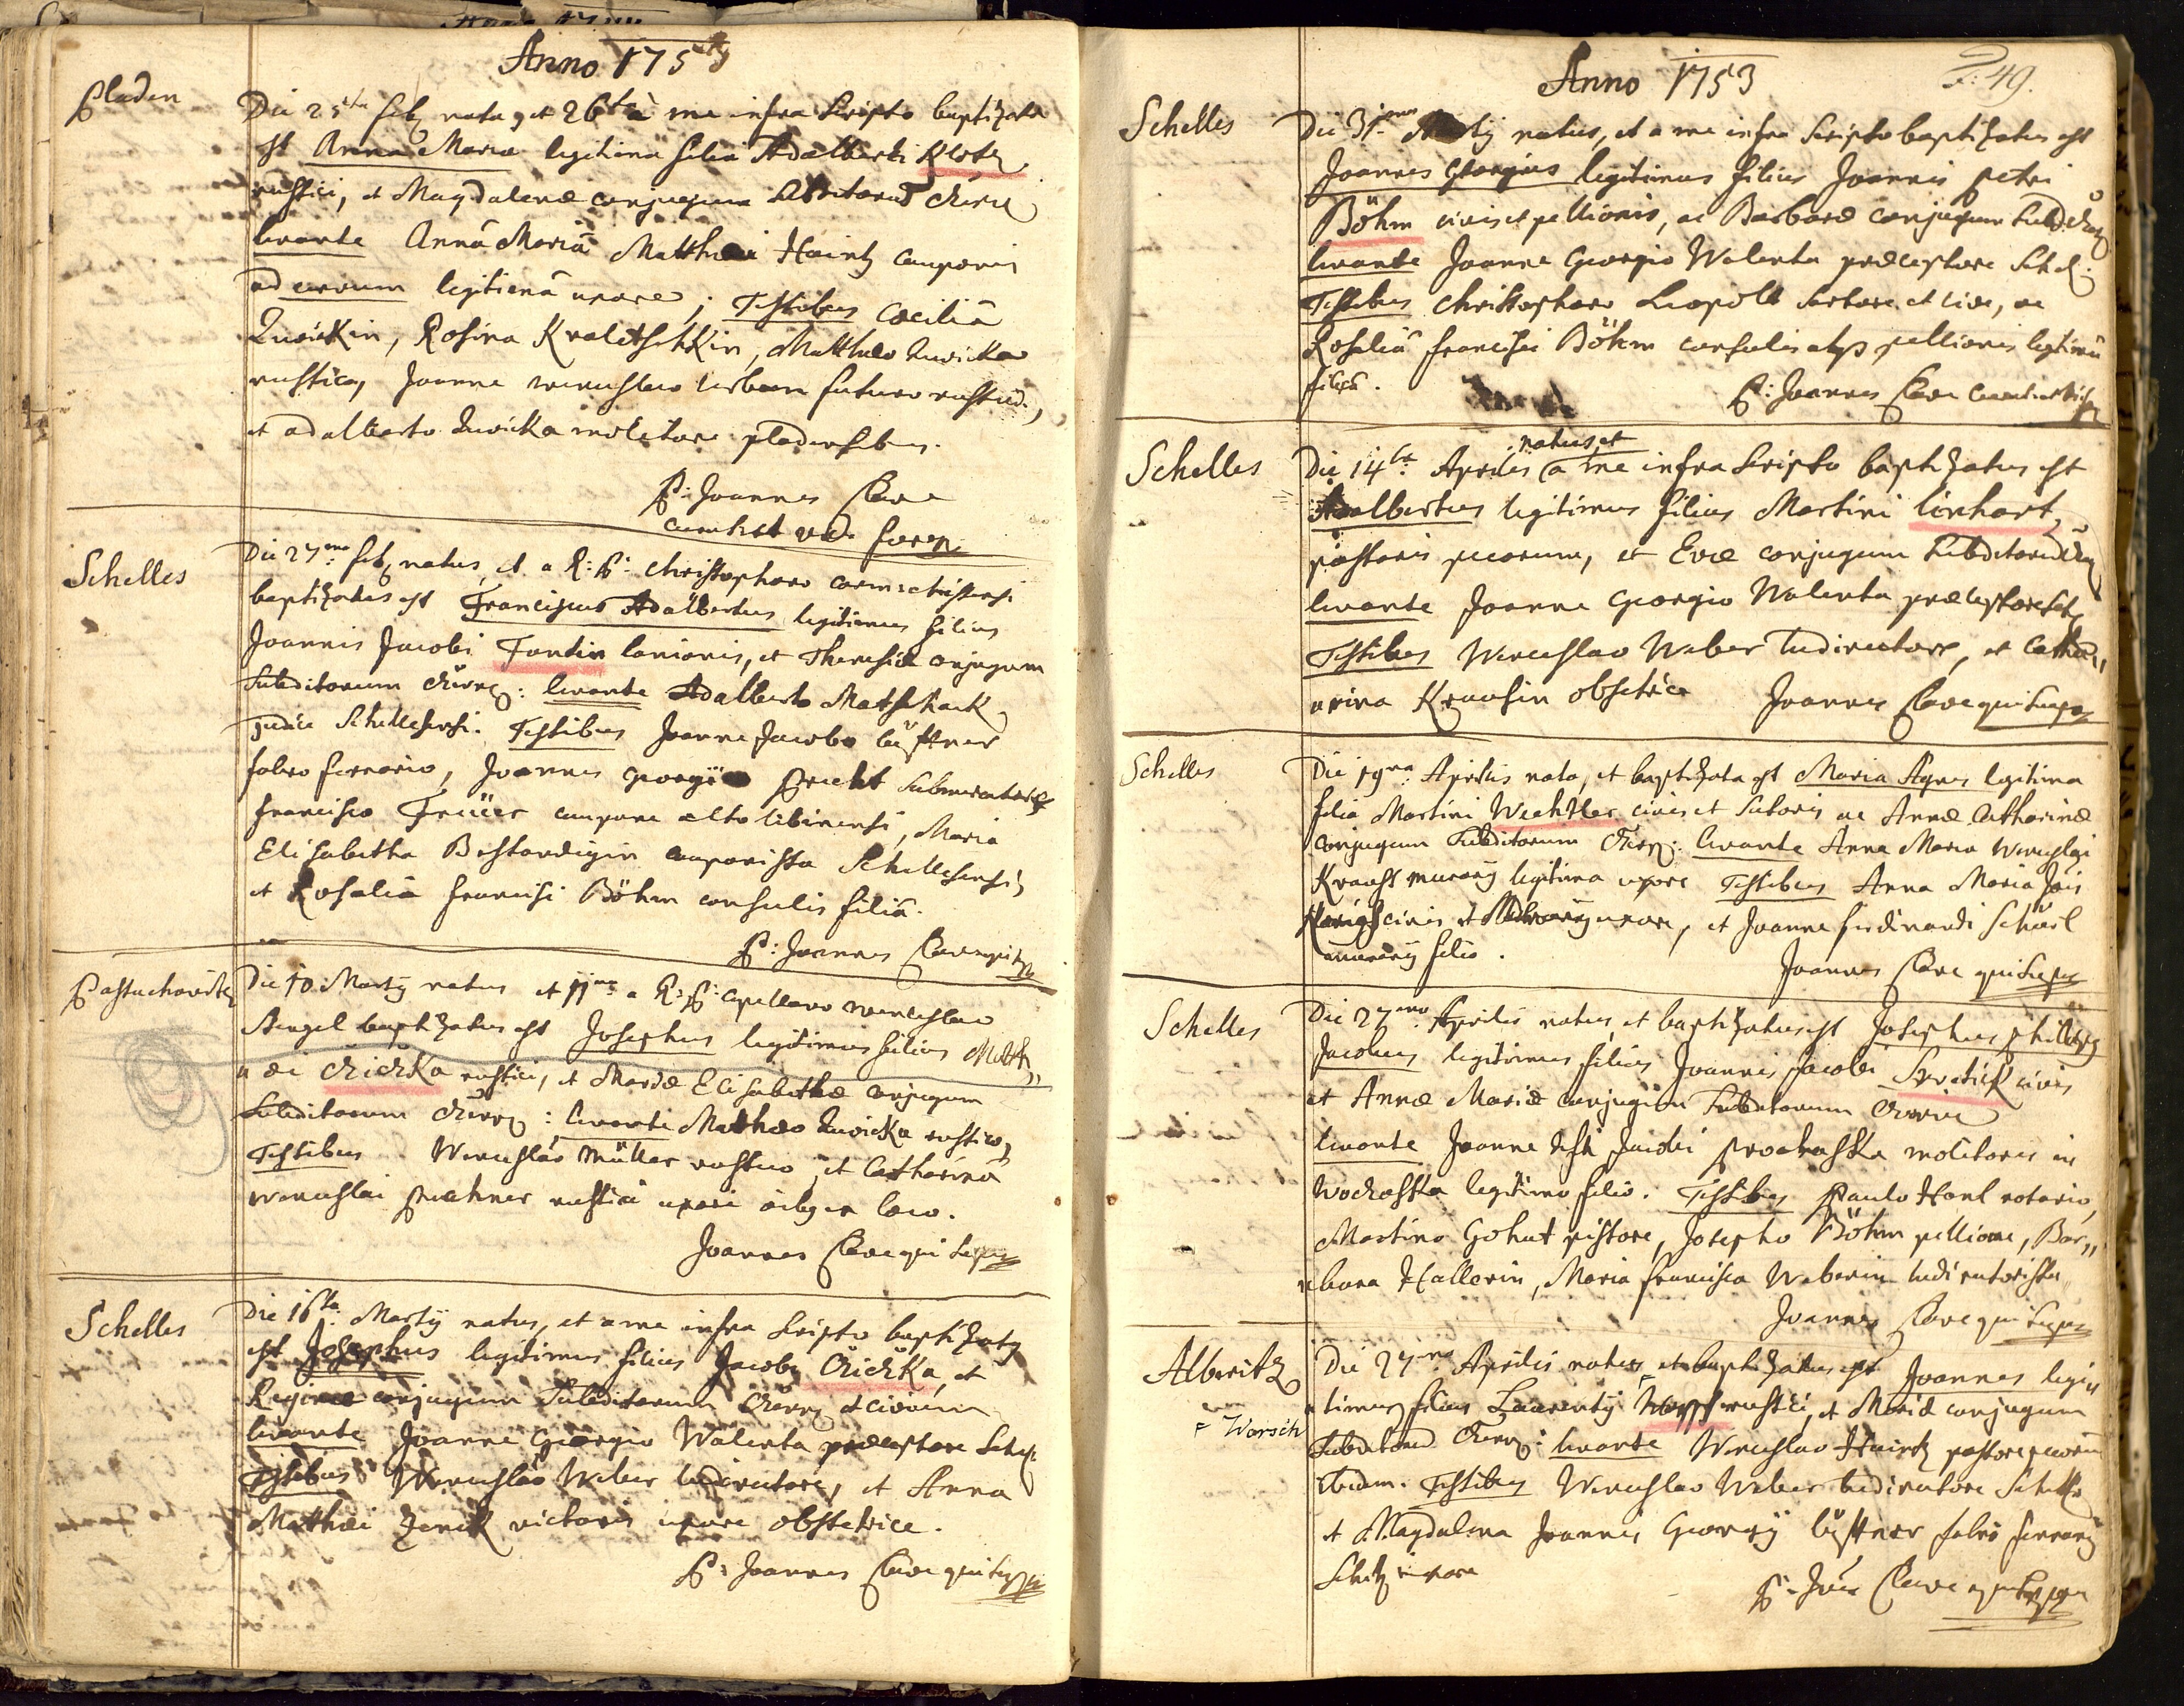 Anno 1753
Pladen
Die 25ta feb. nata, et 26ta a me infra scripto baptizata
est Anna Maria legitima filia Adalberti Klotz
rustici, et Magdalenæ conjugum subditorum
levante Annâ Mariâ Matthæi Haintz cauponis
ad cervum legitimâ uxore; Testibus Cæciliâ
Zwickin, Rosina Kraletschkin, Matthæo Zwicka
rustico, Joanne Wenceslao Urban futuro rustico,
et adalberto Zwicka molitore pladensibus.
P: Joannes Clave
Schelles
Die 27ma feb. natus, et a R: P: Christophoro
baptizatus est Franciscus Adalbertus legitimus filius
Joannis Jacobi Fantin lanionis, et Theresiæ conjugum
Subditorum : levante Adalberto Matschack
judice Schellesensi. Testibus Joanne Jacobo Lüftner
fabro ferrario, Joannes Georgio Precht
francisco Früer caupone alto libinensi, Maria
Elisabetha Bestandigin cauponissa Schellesensi,
et Rosaliâ francisci Böhm consulis filiâ.
P: Joannes Clave qui supra
Pastuchovitz
Die 10 Martÿ natus et 11ma a R: P: capellano Wenceslao
Stingel baptizatus est Josephus legitimus filius Matth„
„æi Cžiežka rustici, et Mariæ Elisabethæ conjugum
Subditorum : levante Matthæo Zwicka rustico,
Testibus Wenceslâo Müller rustico, et Catharinâ
Wenceslai Puchner rustici uxore loco.
Joannes Clave qui supra
Schelles
Die 16ta Martÿ natus, et a me infra scripto baptizatus
est Josephus legitimus filius Jacobi Cžiežka, et
Reginæ conjugum Subditorum et civium
levante Joanne Georgio Walenta præceptore Schel:
Testibus Wenceslâo Weber ludirectore, et Anna
Matthæi Zenck victoris uxore obstetrice.
P: Joannes Clave qui supra
Anno 1753
F: 49.
Schelles
Die 31ma Martÿ natus, et a me infra scripto baptizatus est
Joannes Georgius legitimus filius Joannis Petri
Böhm civis et pellionis, ac Barbaræ conjugum
levante Joanne Georgio Walenta præceptore Schel:
Testibus Christophoro Leopolt sartore et cive, ac
Rosaliâ francisci Böhm consulis atque pellionis legitimâ
filiâ.
P: Joannes Clave
Schelles
natus, et
Die 14ta Aprilis a me infra scripto baptizatus est
Adalbertus legitimus filius Martini Linhart,
pastoris pecorum, et Evæ conjugum Subditorum
levante Joanne Georgio Walenta præceptore Sch:
Testibus Wenceslao Weber ludirectore, et Catha„
„rina Krausin obstetrice Joannes Clave qui supra
Schelles
Die 19na Aprilis nata, et baptizata est Maria Agnes legitima
filia Martini Wechtler civis et sutoris ac Annæ Catharinæ
conjugum Subditorum : levante Anna Maria Wenceslai
Krauss murarÿ legitima uxore Testibus Anna Maria Jois
civis et uxore, et Joanne ferdinandi Schürl
murarÿ filio.
Joannes Clave qui supra
Schelles
Die 27ma Aprilis natus, et baptizatus est Josephus Philippus
Jacobus legitimus filius Joannis Jacobi civis
et Annæ Mariæ conjugum Subditorum
levante Joanne Jacobi Prochaska molitoris in
legitimo filio. Testibus Paulo Hanl notario,
Martino Gohut pistore, Josepho Böhm pellione, Bar„
„bara Hallerin, Maria francisca Weberin ludirectorissa
Joannes Clave qui supra
Alberitz
Die 27ma Aprilis natus et baptizatus est Joannes legi„
= Worsch
„timus filius Laurentÿ rustici, et Mariæ conjugum
Subditorum : levante Wenceslao Haintz pastore pecorum
ibidem. Testibus Wenceslao Weber ludirectore Schelles
et Magdalena Joannis Georgÿ Lüftner fabri ferrarÿ
uxore
P: Joannes Clave qui supra